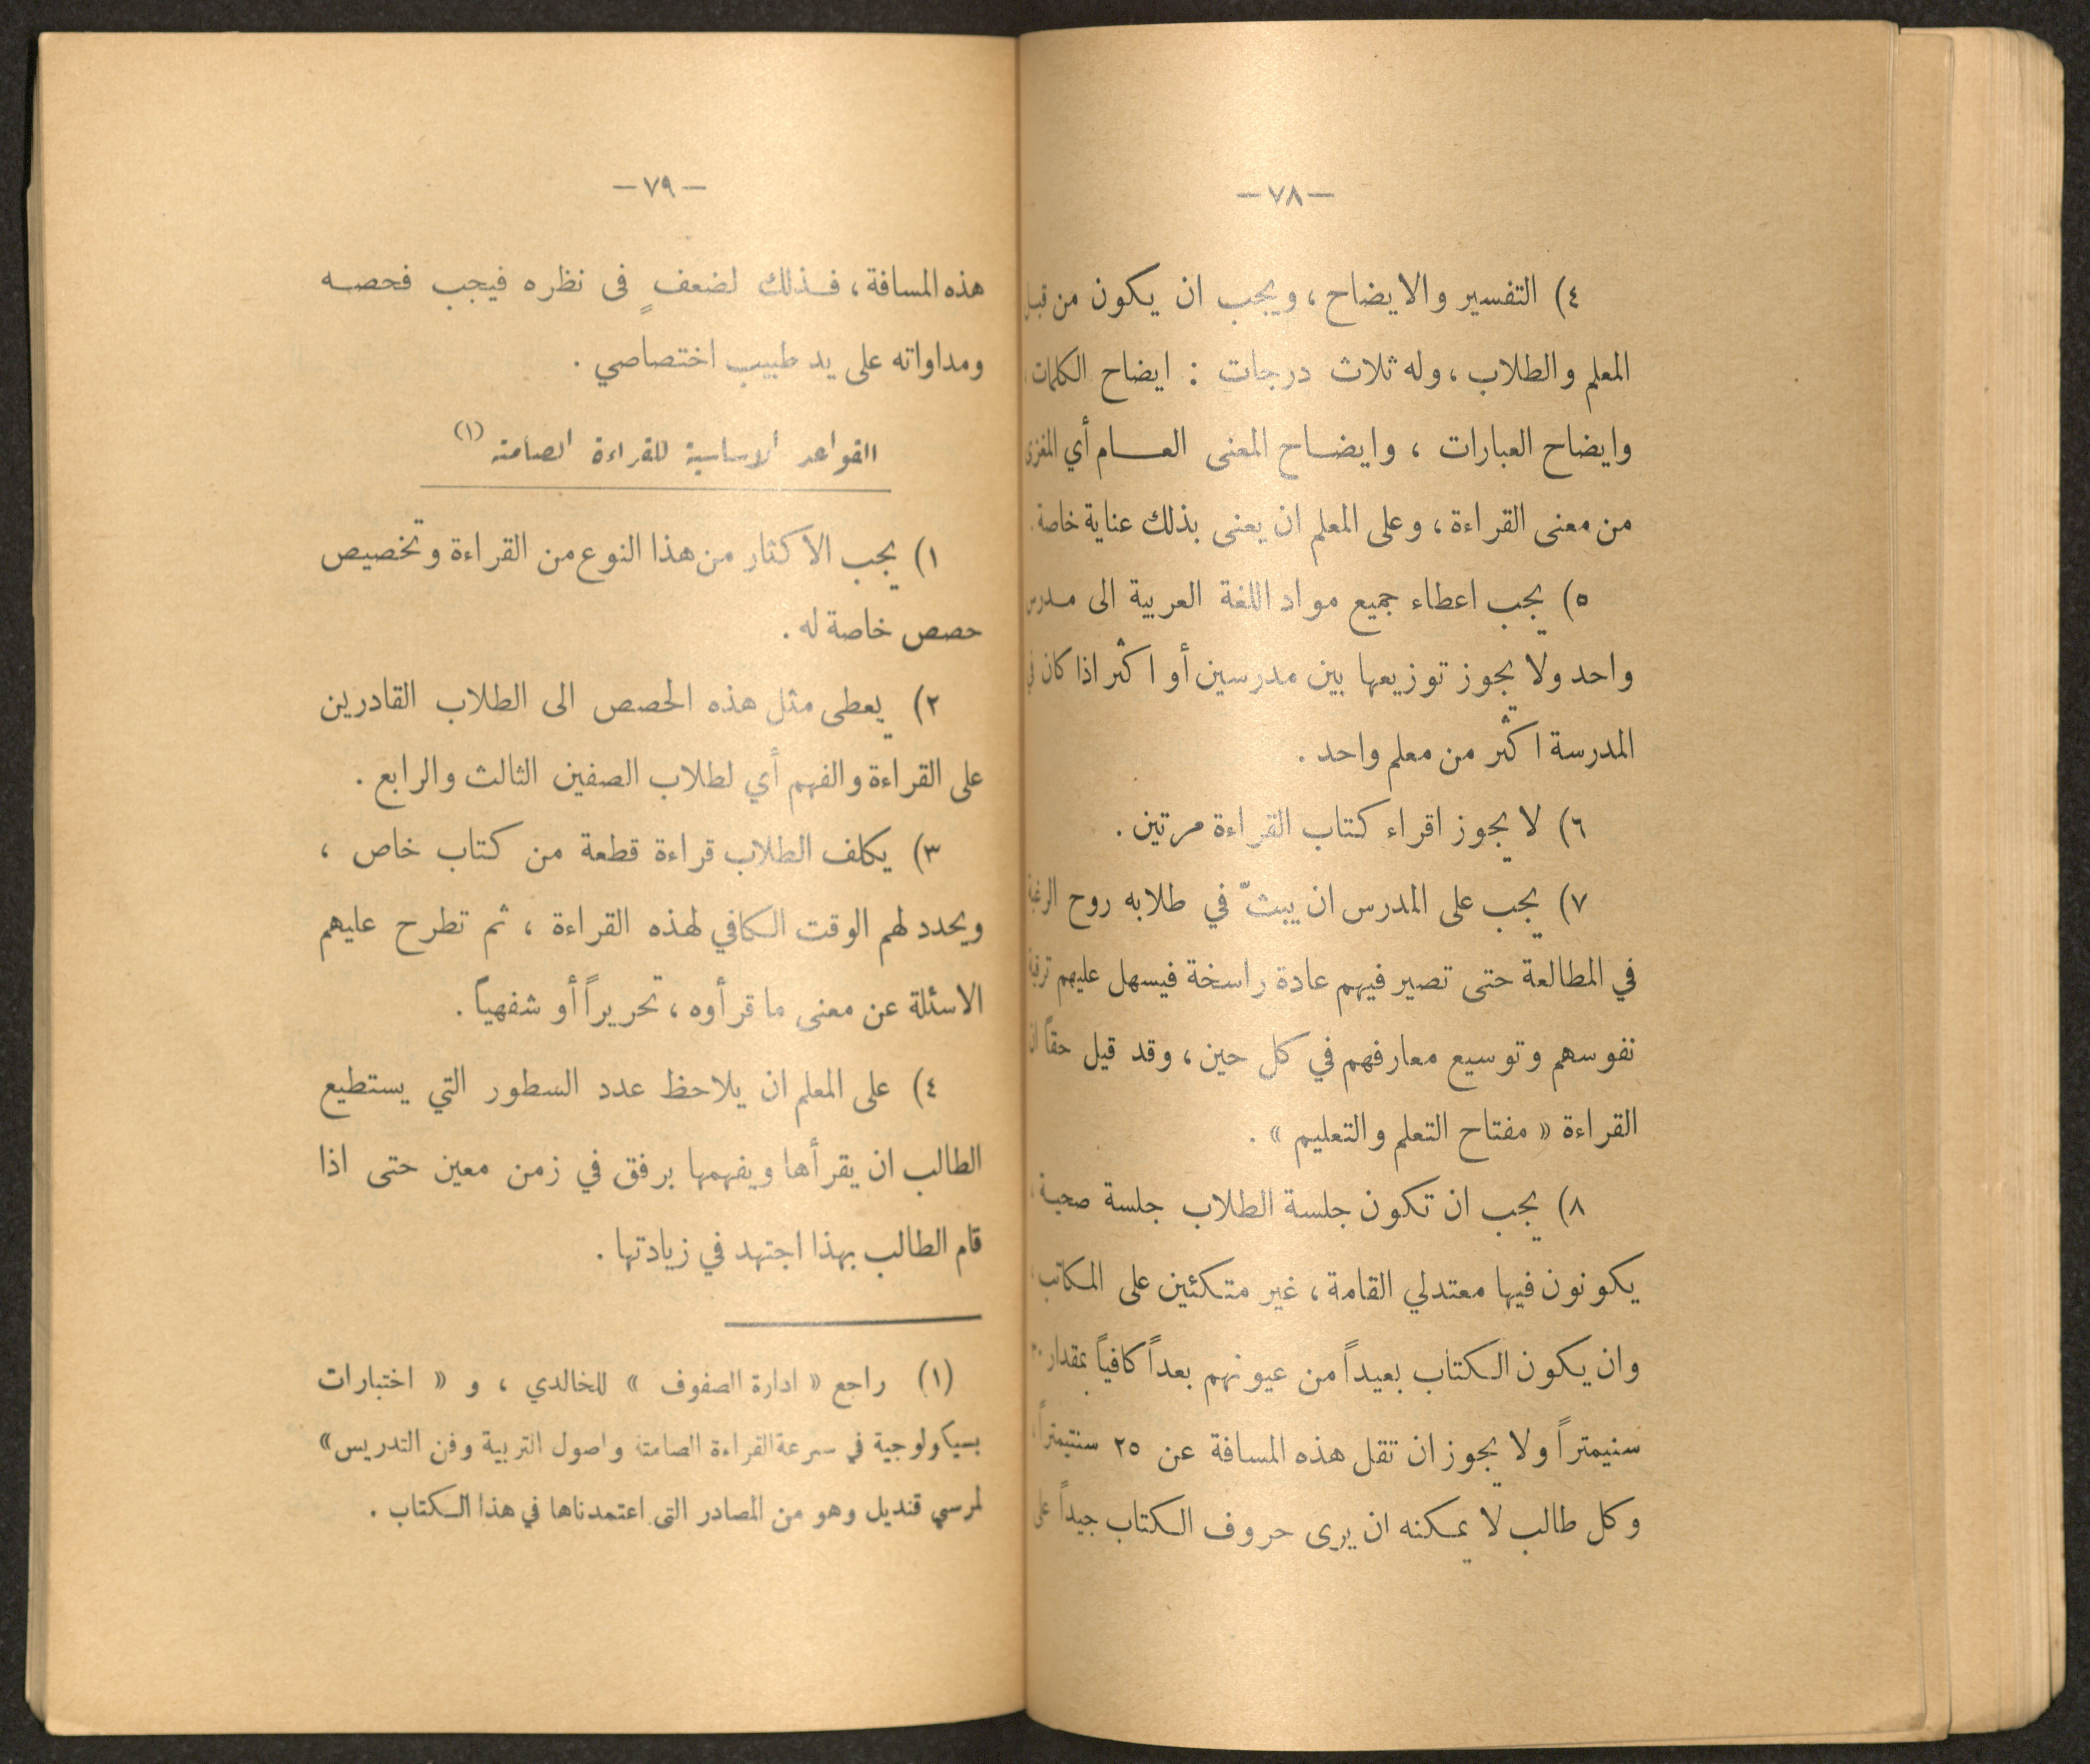 — ٧٨ —
٤) التفسير والايضاح، ويجب ان يكون من قبل
المعلم والطلاب، وله ثلاث درجات : ايضاح الكلمات
وايضاح العبارات ، وايضاح المعنى العام أي المغزى
من معنى القراءة، وعلى المعلم ان يعنى بذلك عناية خاصة.
٥) يجب اعطاء جميع مواد اللغة العربية الى مدرس
واحد ولا يجوز توزيعها بين مدرسين أو اكثر اذا كان في
المدرسة اكثر من معلم واحد .
٦) لا يجوز اقراء كتاب القراءة مرتين .
٧) يجب على المدرس ان يبثّ في طلابه روح الرغبة
في المطالعة حتى تصير فيهم عادة راسخة فيسهل عليهم ترقية
نفوسهم وتوسيع معارفهم في كل حين، وقد قيل حقاً ان
القراءة « مفتاح التعلم والتعليم » .
٨) يجب ان تكون جلسة الطلاب جلسة صحية
يكونون فيها معتدلي القامة، غير متكئين على المكاتب
وان يكون الكتاب بعيداً من عيونهم بعداً كافياً بمقدار
سنيمتراً ولا يجوز ان تقل هذه المسافة عن ٢٥ سنتيمتراً،
وكل طالب لا يمكنه ان يرى حروف الكتاب جيداً على
— ٧٩ —
هذه المسافة، فذلك لضعفٍ فى نظره فيجب فحصه
ومداواته على يد طبيب اختصاصي .
القواعد الاساسية للقراءة الصامتة (١)
١) يجب الاكثار من هذا النوع من القراءة وتخصيص
حصص خاصة له .
٢) يعطى مثل هذه الحصص الى الطلاب القادرين
على القراءة والفهم أي لطلاب الصفين الثالث والرابع .
٣) يكلف الطلاب قراءة قطعة من كتاب خاص ،
ويحدد لهم الوقت الكافي لهذه القراءة ، ثم تطرح عليهم
الاسئلة عن معنى ما قرأوه، تحريراً أو شفهياً .
٤) على المعلم ان يلاحظ عدد السطور التي يستطيع
الطالب ان يقرأها ويفهمها برفق في زمن معين حتى اذا
قام الطالب بهذا اجتهد في زيادتها .
(١) راجع « ادارة الصفوف » للخالدي ، و « اختبارات
بسيكولوجية في سرعة القراءة الصامتة واصول التربية وفن التدريس»
لمرسي قنديل وهو من المصادر التى اعتمدناها في هذا الكتاب .